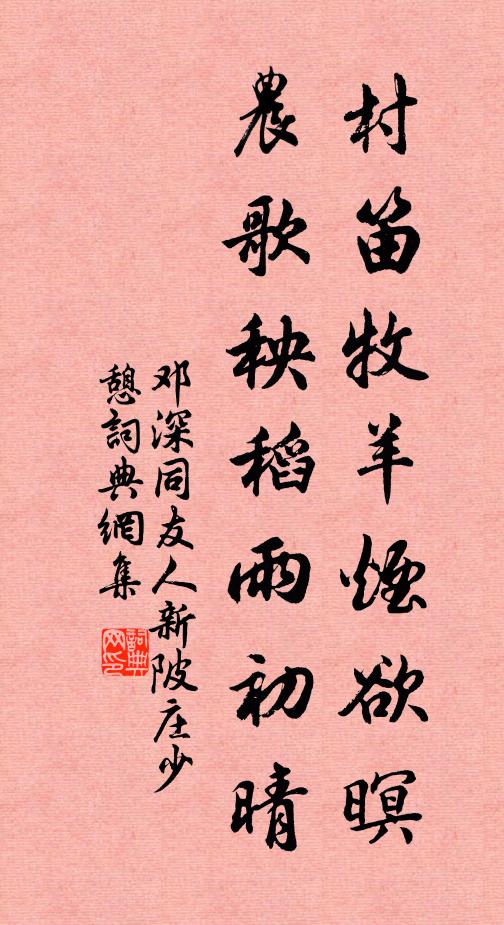 村笛牧羊煙欲暝
農歌秧稻雨初晴
邓深同友人新陂庄少
憩詞典網集
詞典网印